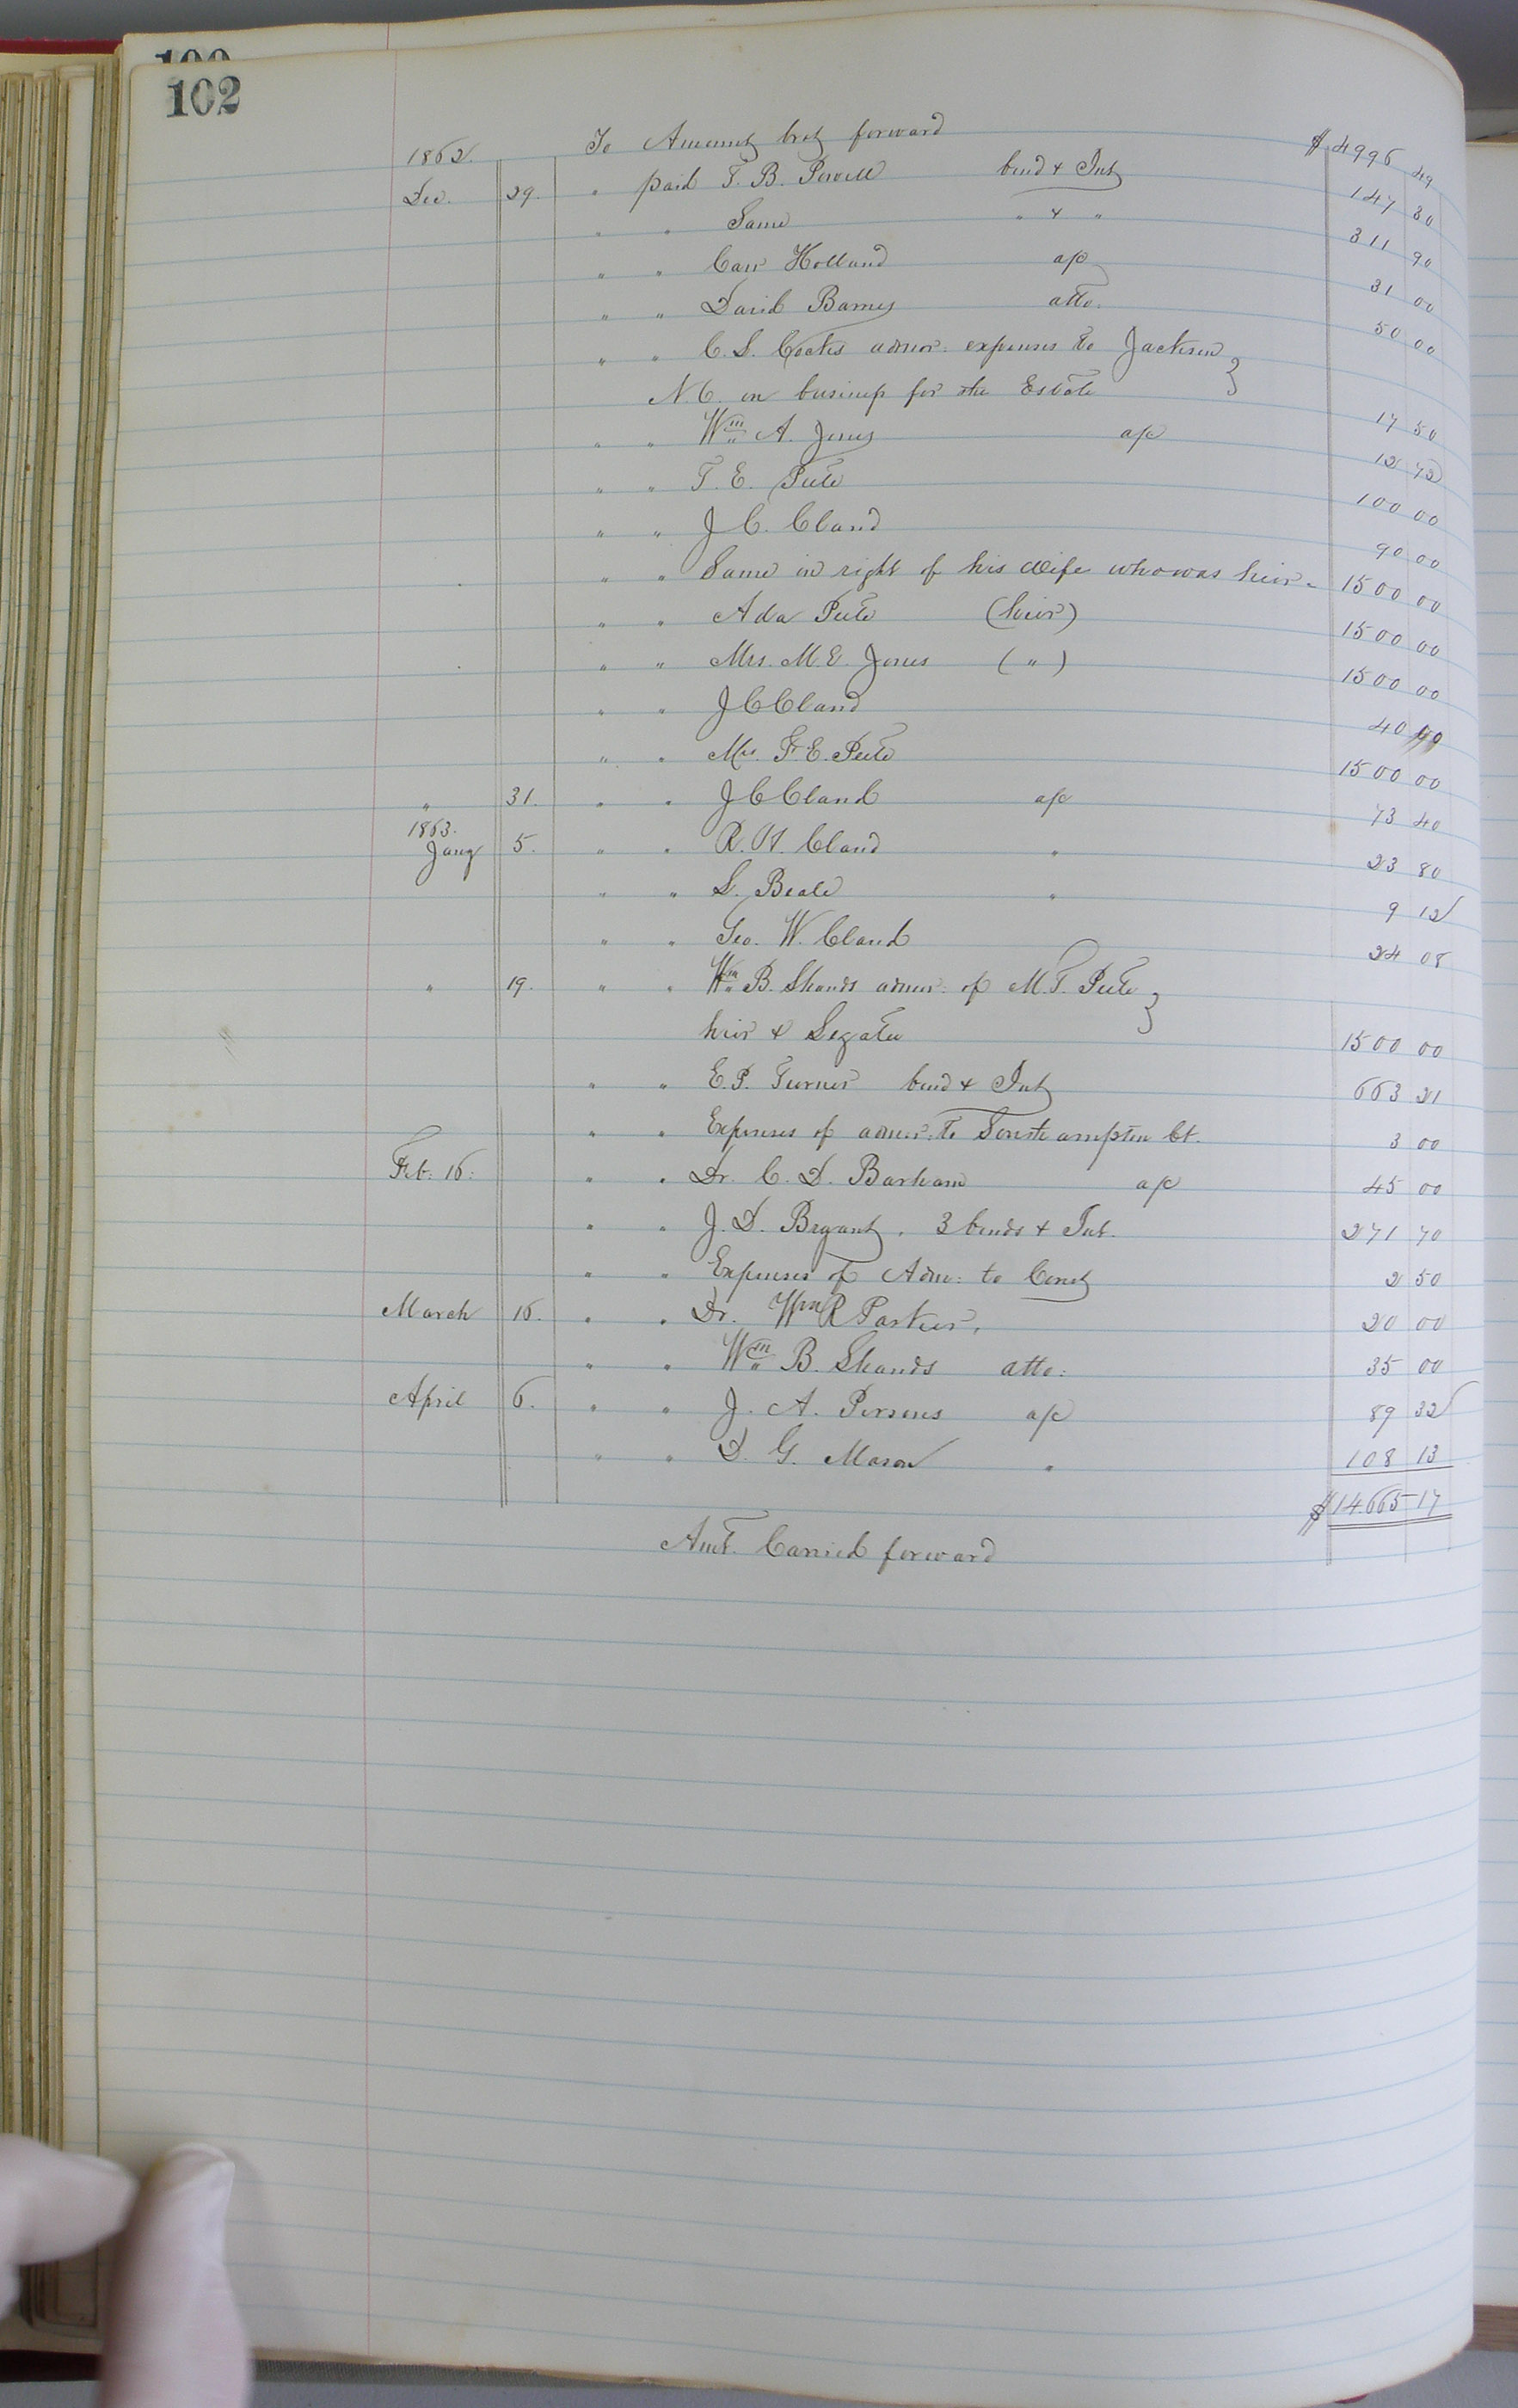 100
102
1862. To Amount brot forward $4996 49
Dec. 29. " paid T. B. Powell bond & Int 147 30
" " Same " & " 311 90
" " Carr Holland a/c 31 00
" " David Barnes atto. 50 00
" " C. S. Coates admor: expenses to Jackson }
N.C. on business for the Estate 17 50
" " Wm A. Jones a/c 12 72
" " T. E. Pete 100 00
" " J C. Claud 90 00
" " Same in right of his Wife who was heir - 1500 00
" " Ada Pete (heir) 1500 00
" " Mrs. M. E. Jones ( " ) 1500 00
" " J C Claud 40
" " Mrs. F. E. Pete 1500 00
" 31. " " J C Claud a/c 73 40
1863.
Jany 5. " " R. H. Claud " 23 80
" " S. Beale " 9 12
" " Geo. W. Claud 24 08
" 19. " " Wm B. Shands admor: of M. T. Pete }
heir & Legatee 1500 00
" " E. P. Turner bond & Int 663 21
" " Expenses of admor: to Southampton Ct. 3 00
Feb: 16: " " Dr. C. D. Barham a/c 45 00
" " J. D. Bryant, 3 bonds & Int. 271 70
" " Expenses of Admr: to Court 2 50
March 16. " " Dr. Wm R Parker, 20 00
" " Wm B. Shands atto: 35 00
April 6. " " J. A. Persons a/c 89 32
" " D. G. Mason " 108 13
$14665 17
Amt. Carried forward